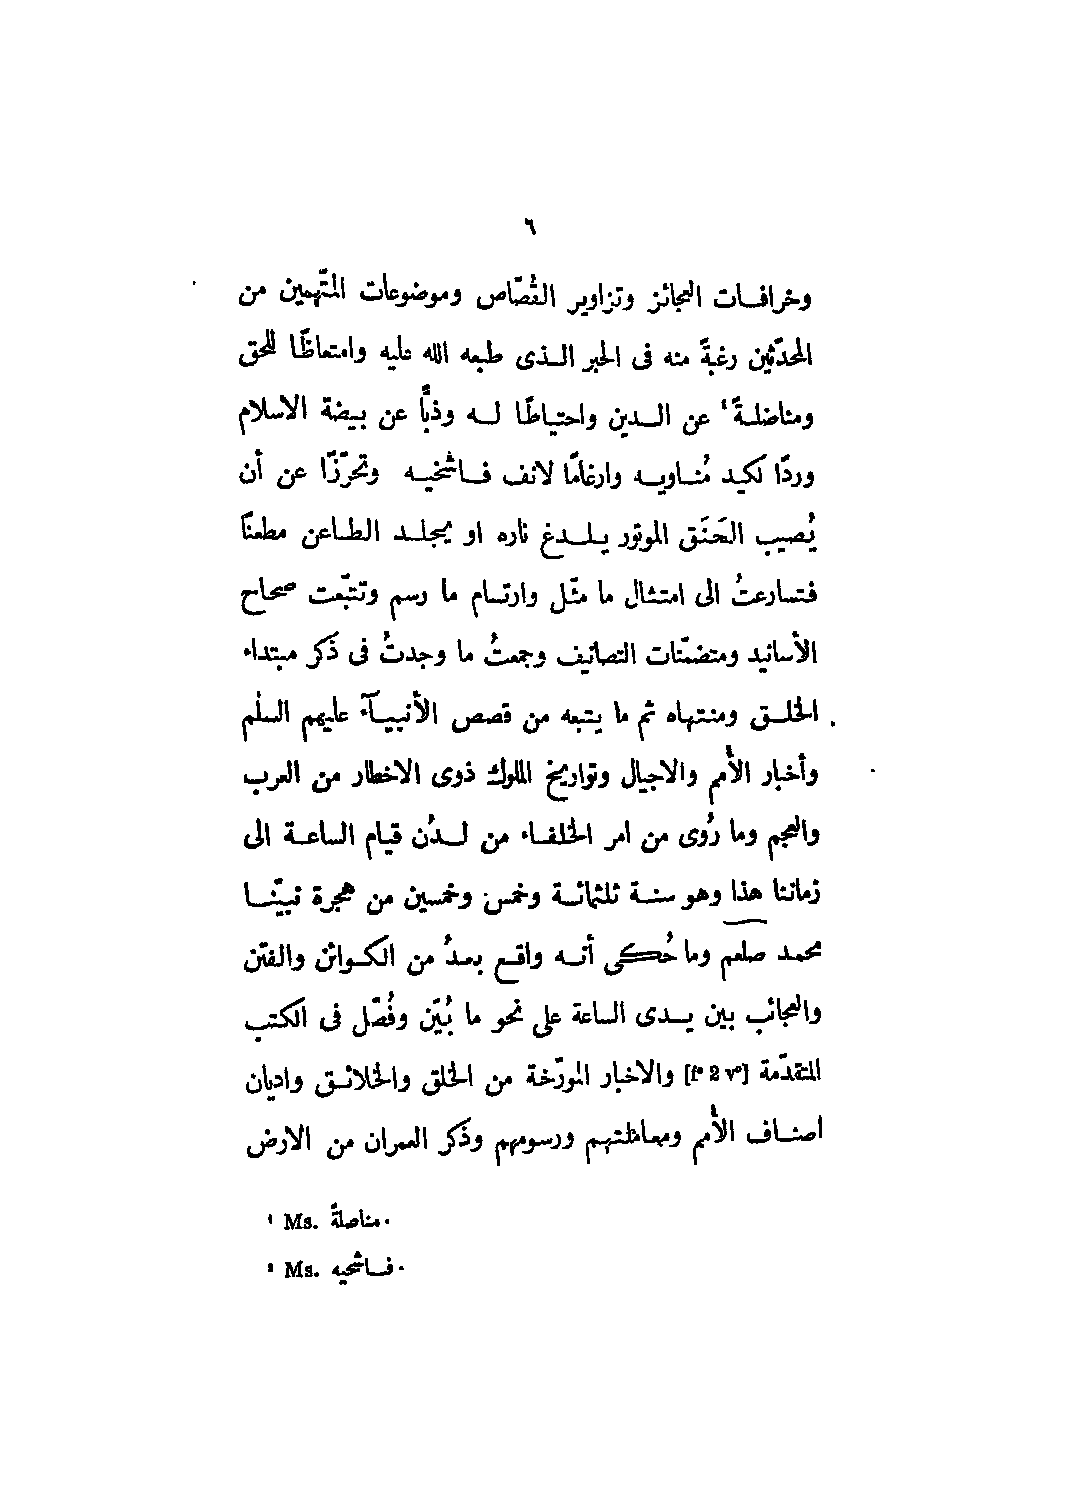 ٦
وخرافات العجائز وتزاوير القُصّاص وموضوعات المتّهمين من
المحدّثين رغبةً منه فى الخبر الذى طبعه الله عليه وامتعاظًا للحق
ومناضلةً¹ عن الدين واحتياطًا له وذبًّا عن بيضة الاسلام
وردًا لكيد مُناويه وارغامًا لانف فاشخيه وتحرّزًا عن أن
يُصيب الحَنَق الموتور يلدغ ناره او يجلد الطاعن مطعنًا
فتسارعتُ الى امتثال ما مثّل وارتسام ما رسم وتتبّعت صحاح
الأسانيد ومتضمّنات التصانيف وجمعتُ ما وجدتُ فى ذكر مبتداء
الخلق ومنتهاه ثم ما يتبعه من قصص الأنبيآء عليهم السلم
وأخبار الأمم والاجيال وتواريخ الملوك ذوى الاخطار من العرب
والعجم وما رُوى من امر الخلفاء من لدُن قيام الساعة الى
زماننا هذا وهو سنة ثلثمائة وخمس وخمسين من هجرة نبيّنا
محمد صلعم وما حُكى أنه واقع بعدُ من الكوائن والفتن
والعجائب بين يدى الساعة على نحو ما بُيّن وفُصّل فى الكتب
المتقدّمة [f° 2 v°] والاخبار المورّخة من الخلق والخلائق واديان
اصناف الأمم ومعاملتهم ورسومهم وذكر العمران من الارض
¹ Ms. مناصلةً.
² Ms. فاشحيه.